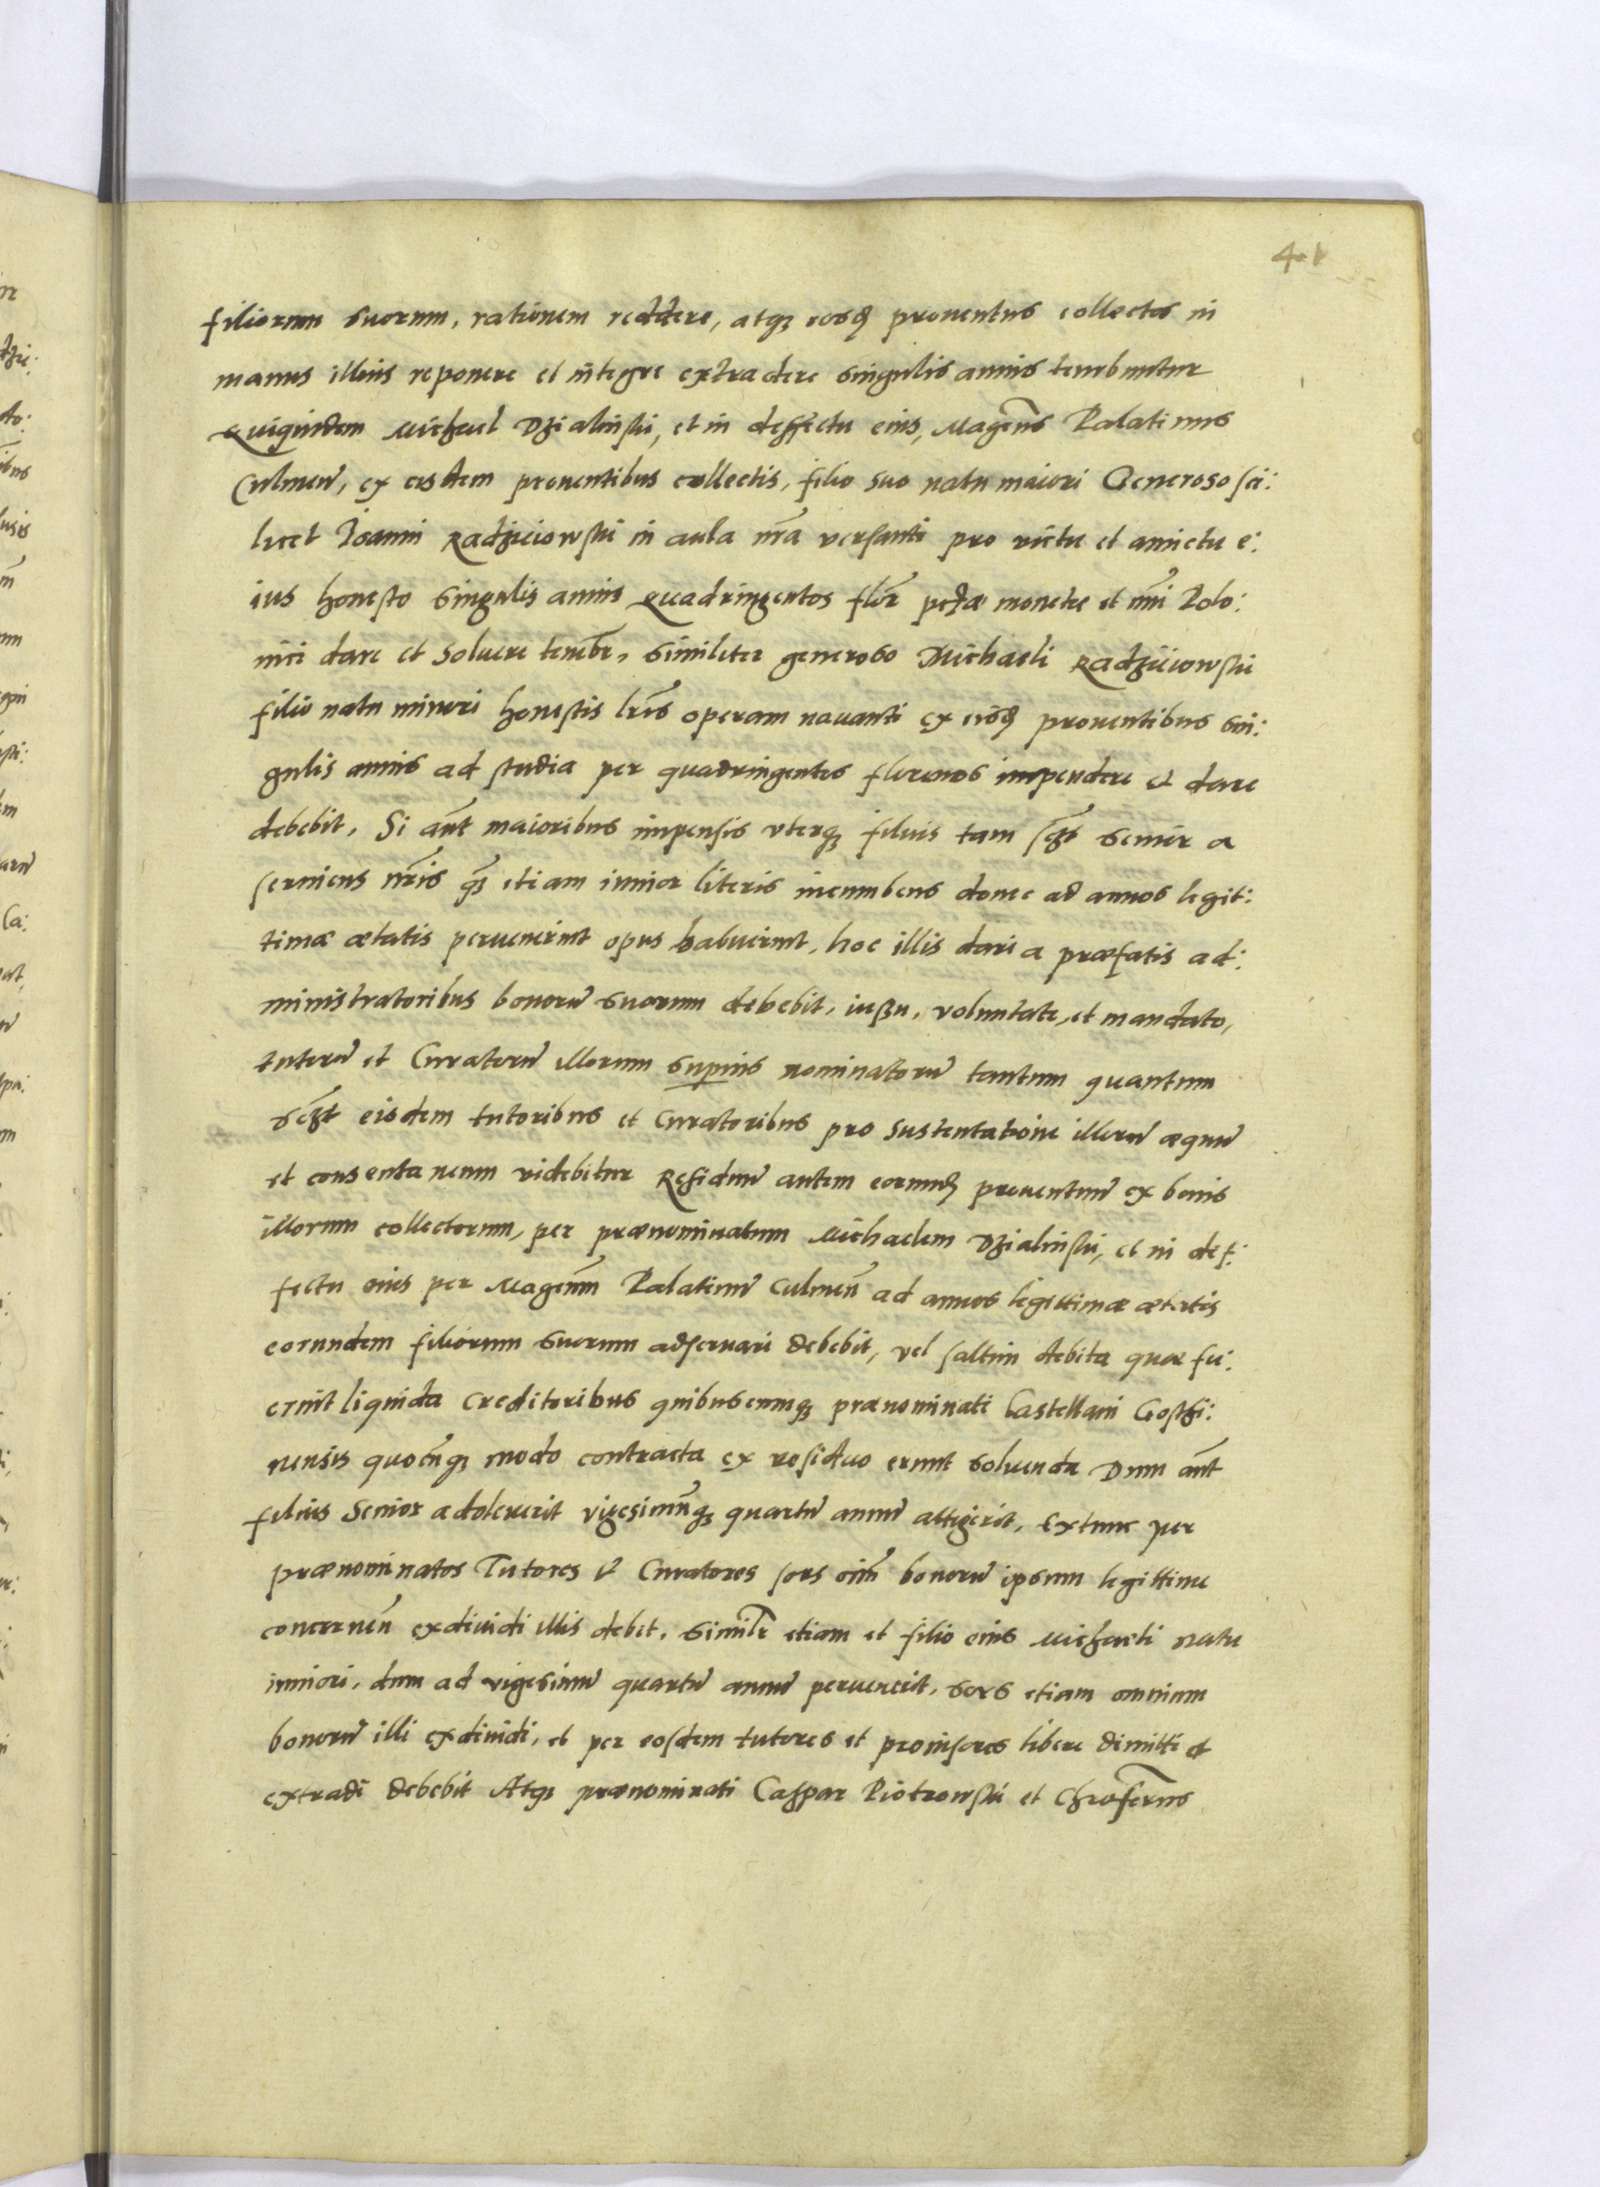 filiorum suorum, rationem reddere, atq₃ eosd̄ prouentus collectos in
manus illius reponere et integre extradere singulis annis tenebuntur
Quiquidem Michael Dzialinski, et in deffectu eius, Magcus Palatinus
Culmeñ, ex eisdem prouentibus collectis, filio suo natu maiori Generoso sci:
licet Joanni Radzieiowski in aula nrã versanti pro victu et amictu e:
ius honesto singulis annis quadringentos flor̃ monetæ et Polo:
nici dare et soluere teneb̃r, similiter generoso Michaeli Radzieiowski
filio natu minori honestis lr̃is operam nauanti ex eisd̄ prouentibus sin:
gulis annis ad studia per quadringentos florenos impendere et dare
debebit, Si aũt maioribus impensis vterq₃ filius tam senior a
seruiens nr̃is q̃₃ etiam iunior literis incumbens donec ad annos legit:
timæ ætatis peruenerint opus habuerint, hoc illis dari a præfatis ad:
ministratoribus bonorũ suorum debebit, iussu, voluntate, et mandato,
tutorũ et Curatorũ illorum supius nominatorũ tantum quantum
eisdem tutoribus et Curatoribus pro sustentatione illorũ æquũ
et consentaneum videbitur Residuũ autem eorund̄ prouentuũ ex bonis
illorum collectorum, per prænominatum Michaelem Dzialinski, et in def:
fectu eius per Magcum Palatinũ Culmeñ ad annos legittimæ ætatis
eorundem filiorum suorum adseruari debebit, vel saltim debita quæ fu:
erint liquida Creditoribus quibuscumq₃ prænominati Castellani Gostzi:
nensis quocũq₃ modo contracta ex residuo erunt soluenda Dum aũt
filius Senior adoleuerit vigesimũq₃ quartũ annũ attigerit, Extunc per
prænominatos Tutores et Curatores sors oĩm bonorũ ipsum legittime
concerneñ exdiuidi illis debet, simil̃r etiam et filio eius Michaeli natu
iuniori, dum ad vigesimũ quartũ annũ peruenerit, sors etiam omnium
bonorũ illi exdiuidi, et per eosdem tutores et prouisores libere dimitti et
extradi debebit Atq₃ prænominati Caspar Piotrowski et